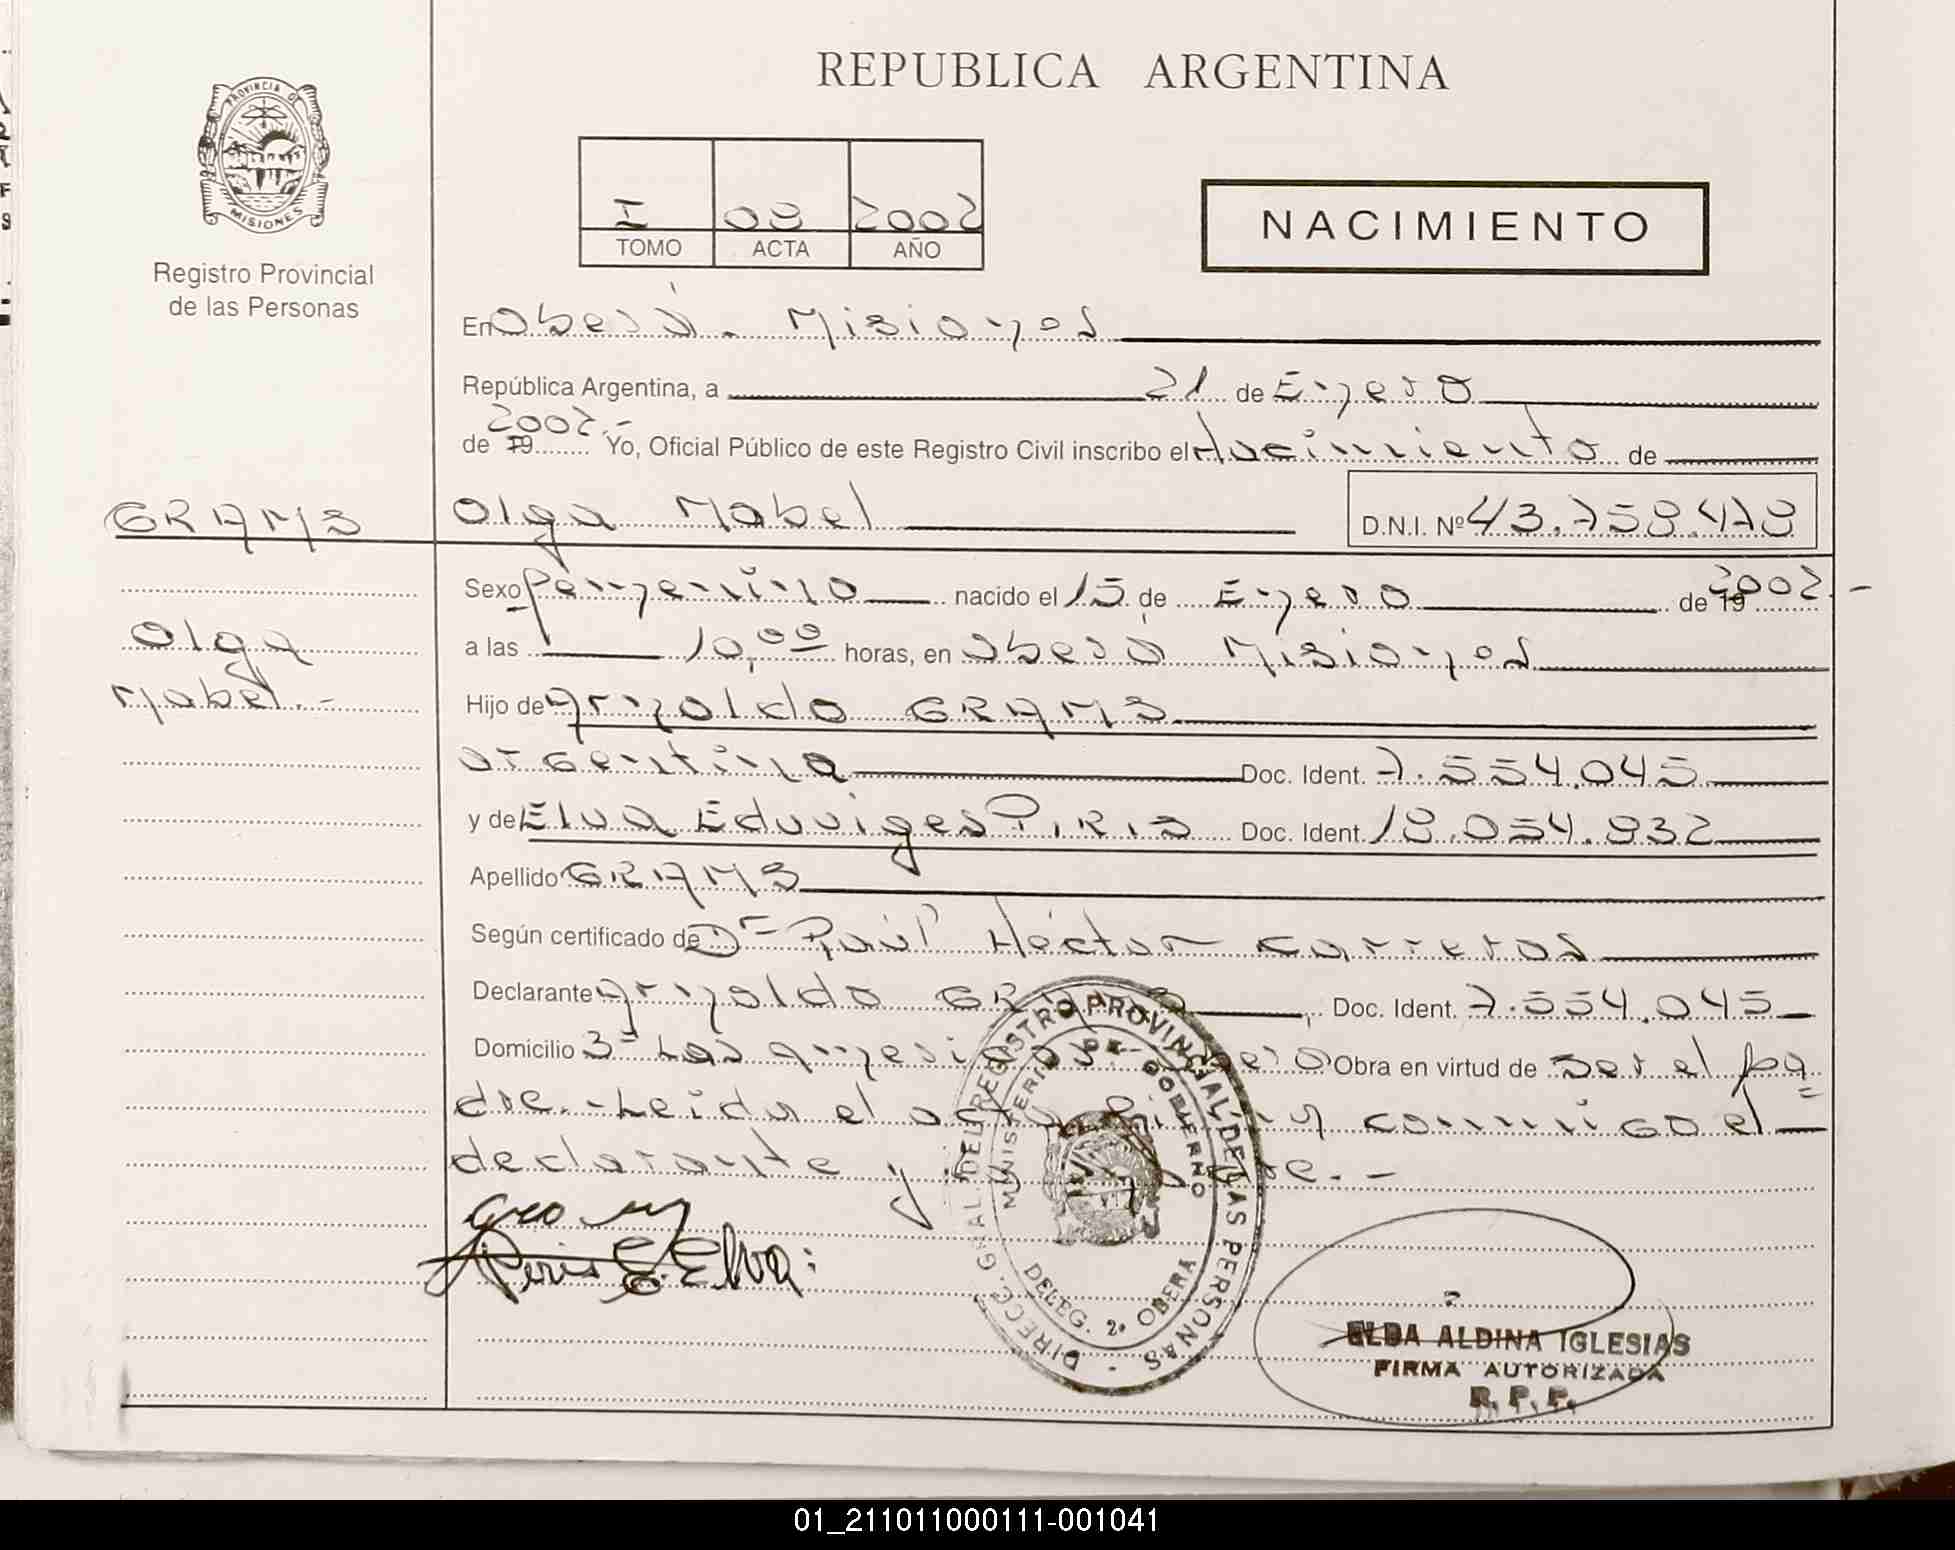 REPUBLICA ARGENTINA
PROVINCIA DE
MISIONES
Registro Provincial
de las Personas
I 08 2002
TOMO ACTA AÑO
NACIMIENTO
En Oberá - Misiones
República Argentina, a 21 de Enero
de 19 2002.- Yo, Oficial Público de este Registro Civil inscribo el Nacimiento de
GRAMS
Olga Mabel D.N.I. Nº 43.758.478
Olga
Mabel.-
Sexo femenino nacido el 15 de Enero de 19 2002.-
a las 10,00 horas, en Oberá Misiones
Hijo de Arnoldo GRAMS
argentina Doc. Ident. 7.554.045
y de Elva Eduviges PIRIS Doc. Ident. 18.054.832
Apellido GRAMS
Según certificado de Dr Raúl Héctor Carreras
Declarante Arnoldo GRAMS, Doc. Ident. 7.554.045
Domicilio Obra en virtud de ser el pa=
dre.- Leida el acta conmigo el
declarante y
Piris E. Elva:
DIRECC. GRAL. DEL REGISTRO PROVINCIAL DE LAS PERSONAS -
MINISTERIO DE GOBIERNO
DELEG. 2ª OBERA
ELDA ALDINA IGLESIAS
FIRMA AUTORIZADA
R. P. P.
01_211011000111-001041